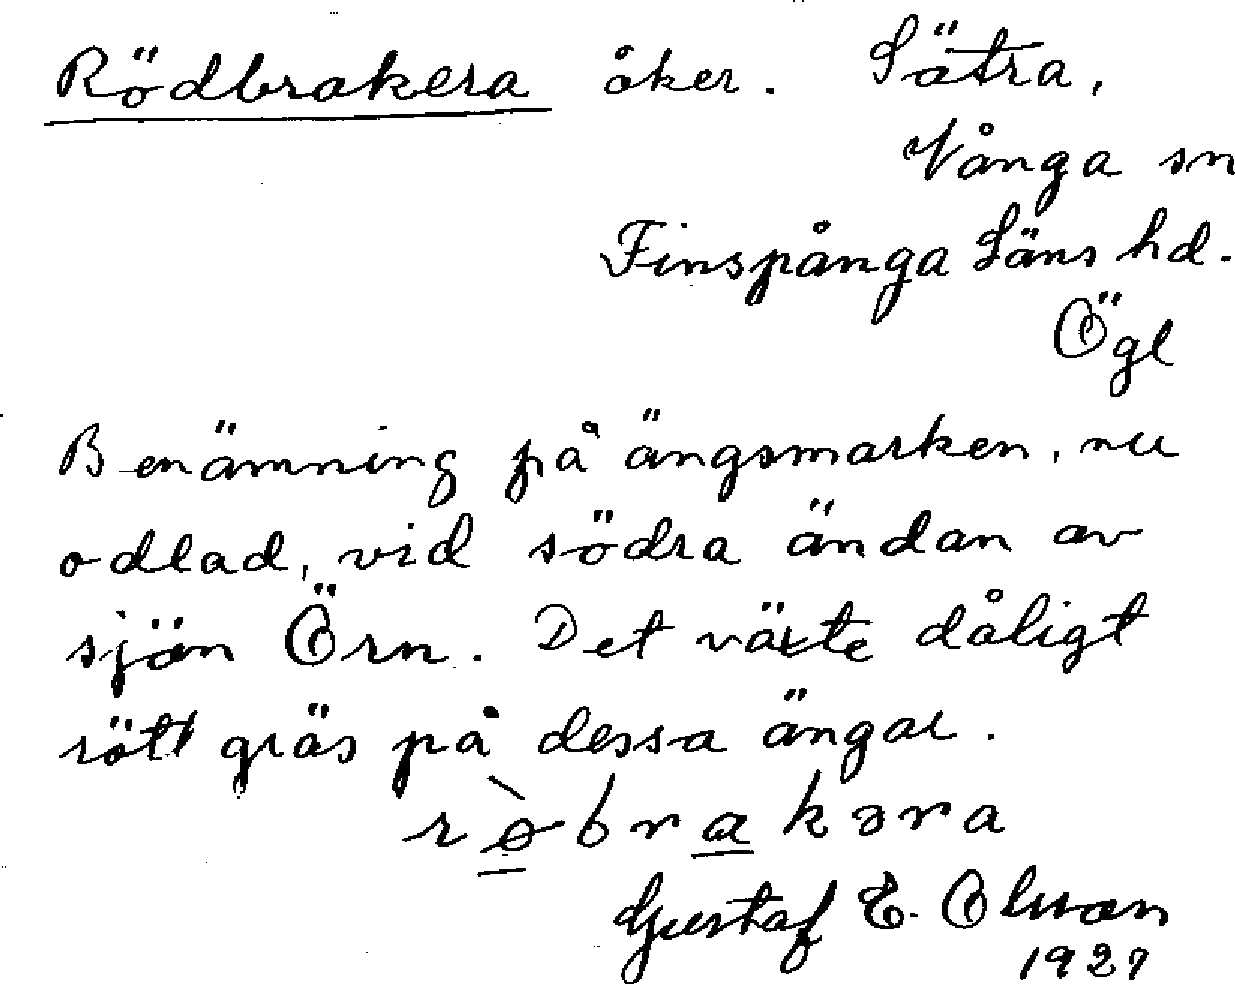 Rödbrakera åker. Sätra,
Vånga sn
Finspånga Läns hd.
Ögl
Benämning på ängsmarken, nu
odlad, vid södra ändan av
sjön Örn. Det växte dåligt
rött gräs på dessa ängar.
rø̀brakəra
Gustaf E. Olsson
1927